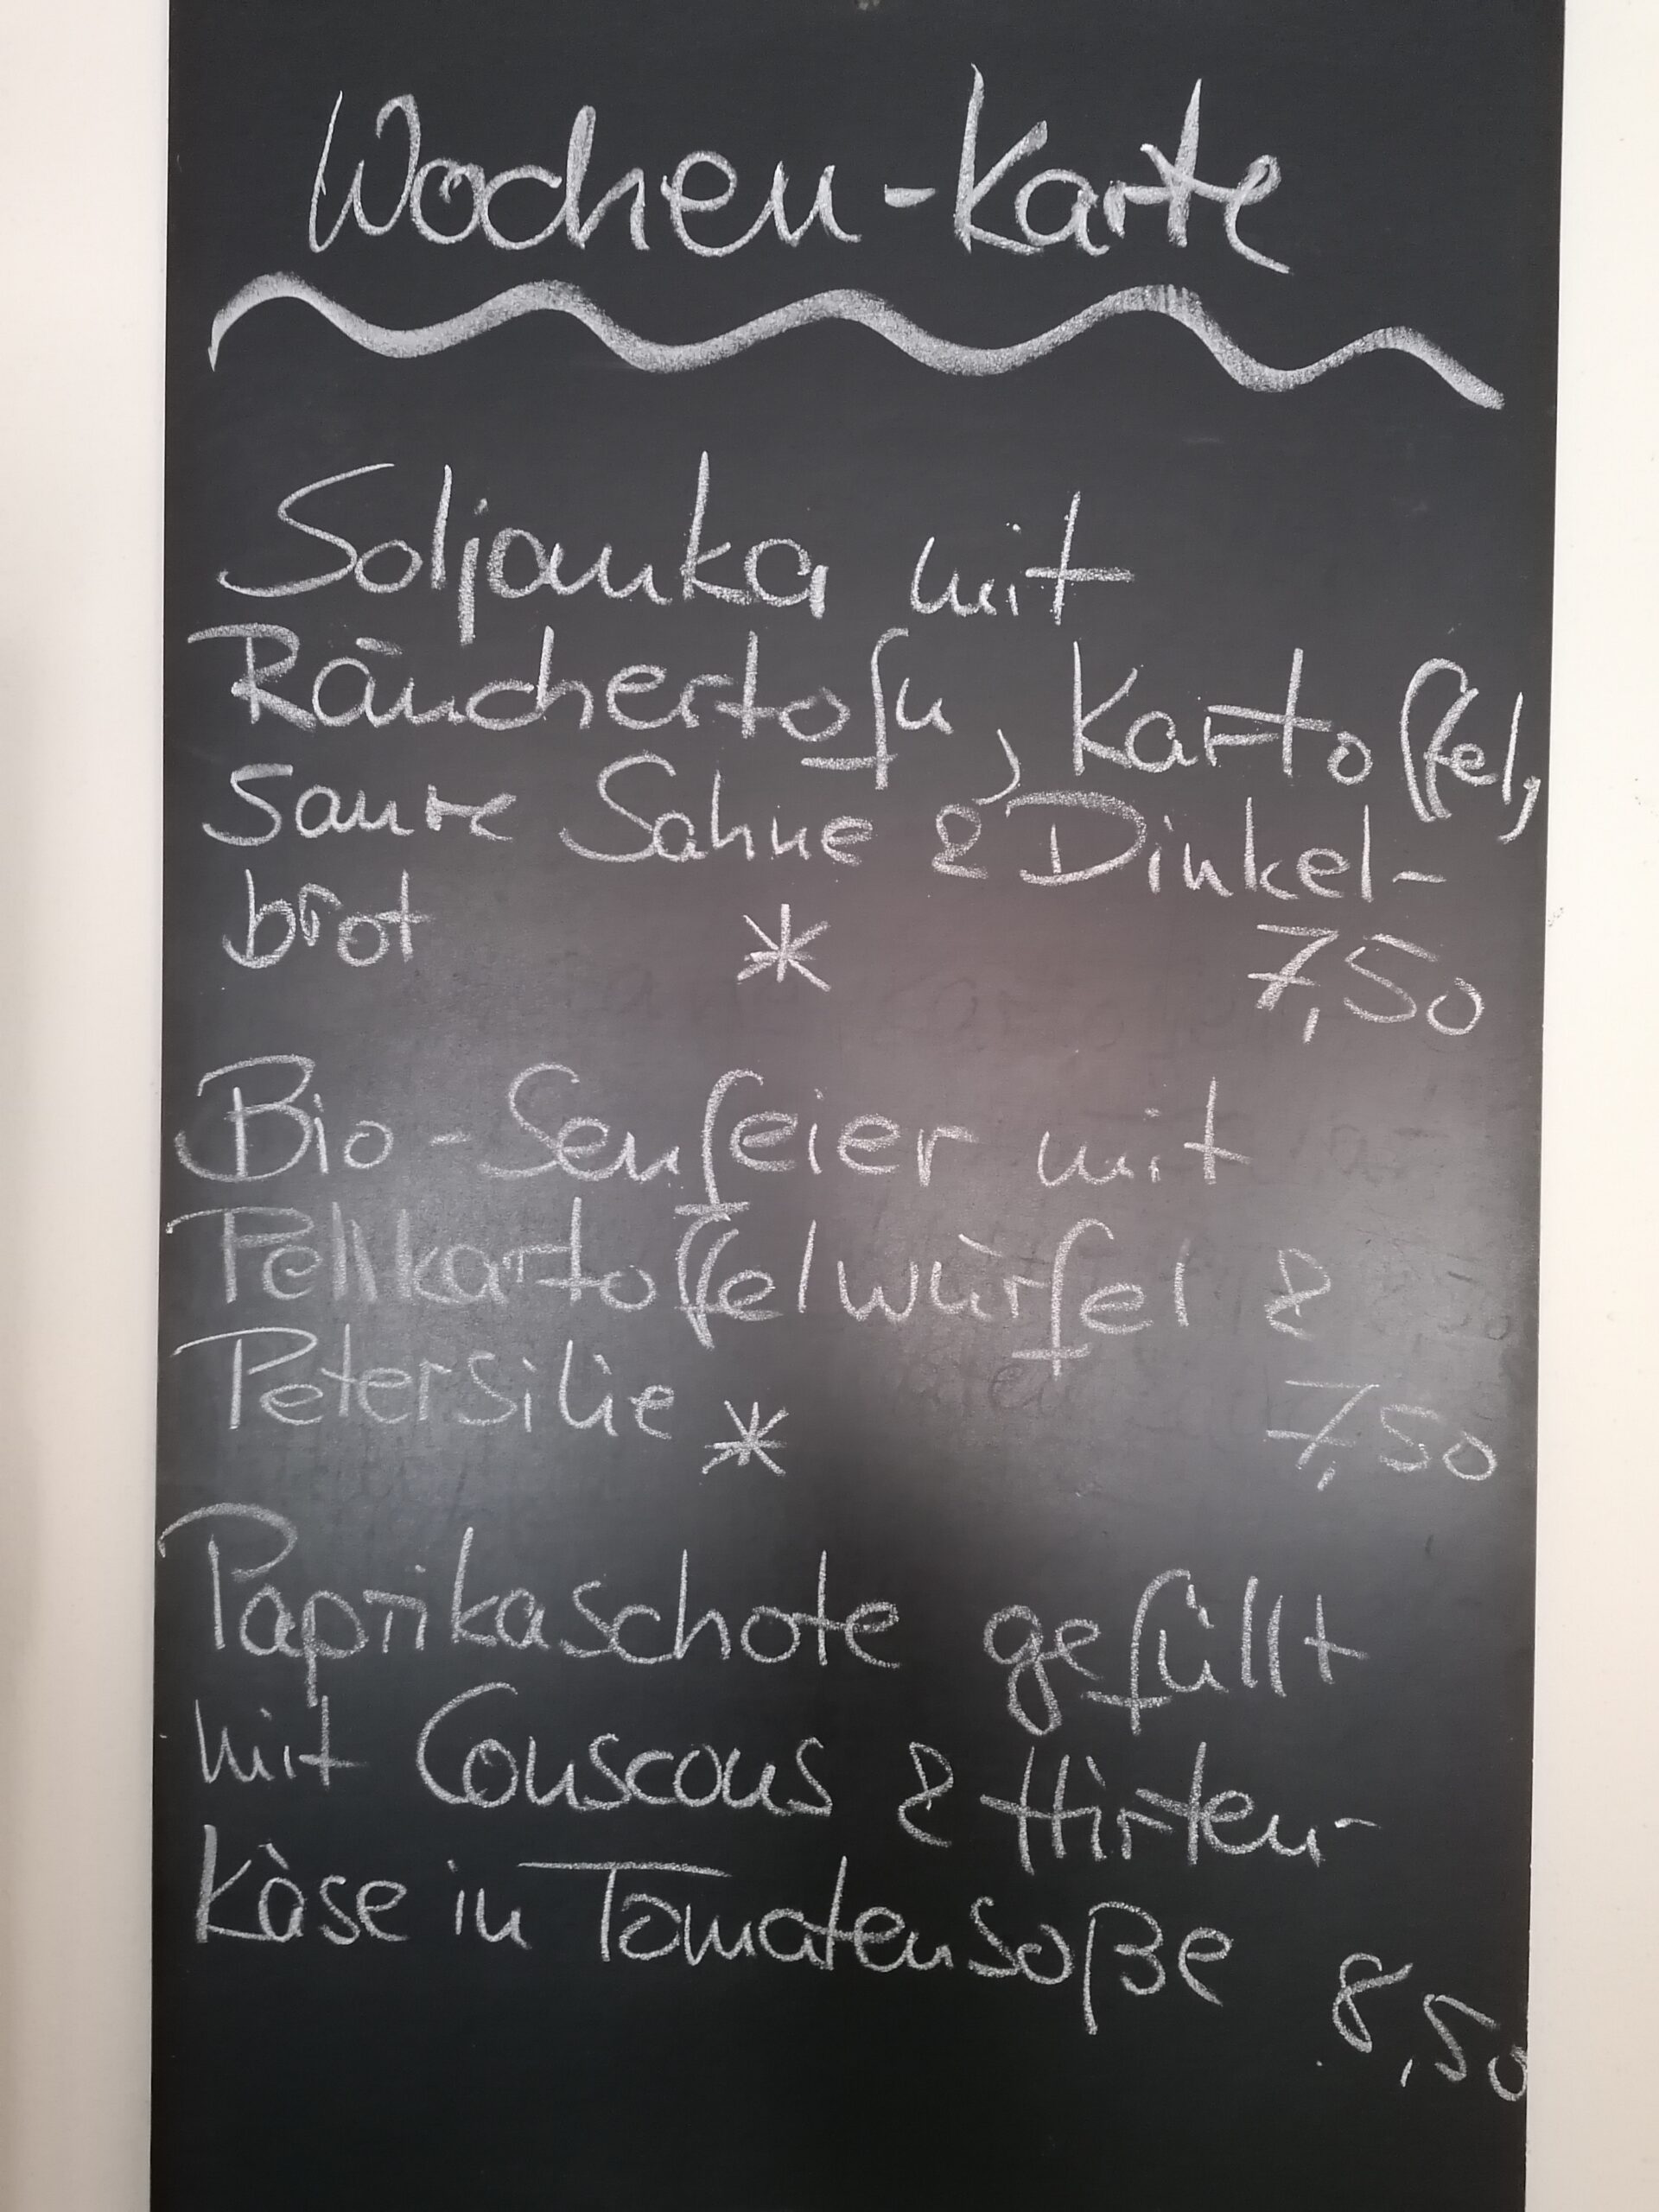 Wochen-Karte
Soljanka mit
Räuchertofu, Kartoffel,
saure Sahne & Dinkel-
brot * 7,50
Bio-Senfeier mit
Pellkartoffelwürfel &
Petersilie * 7,50
Paprikaschote gefüllt
mit Couscous & Hirten-
Käse in Tomatensoße
8,50